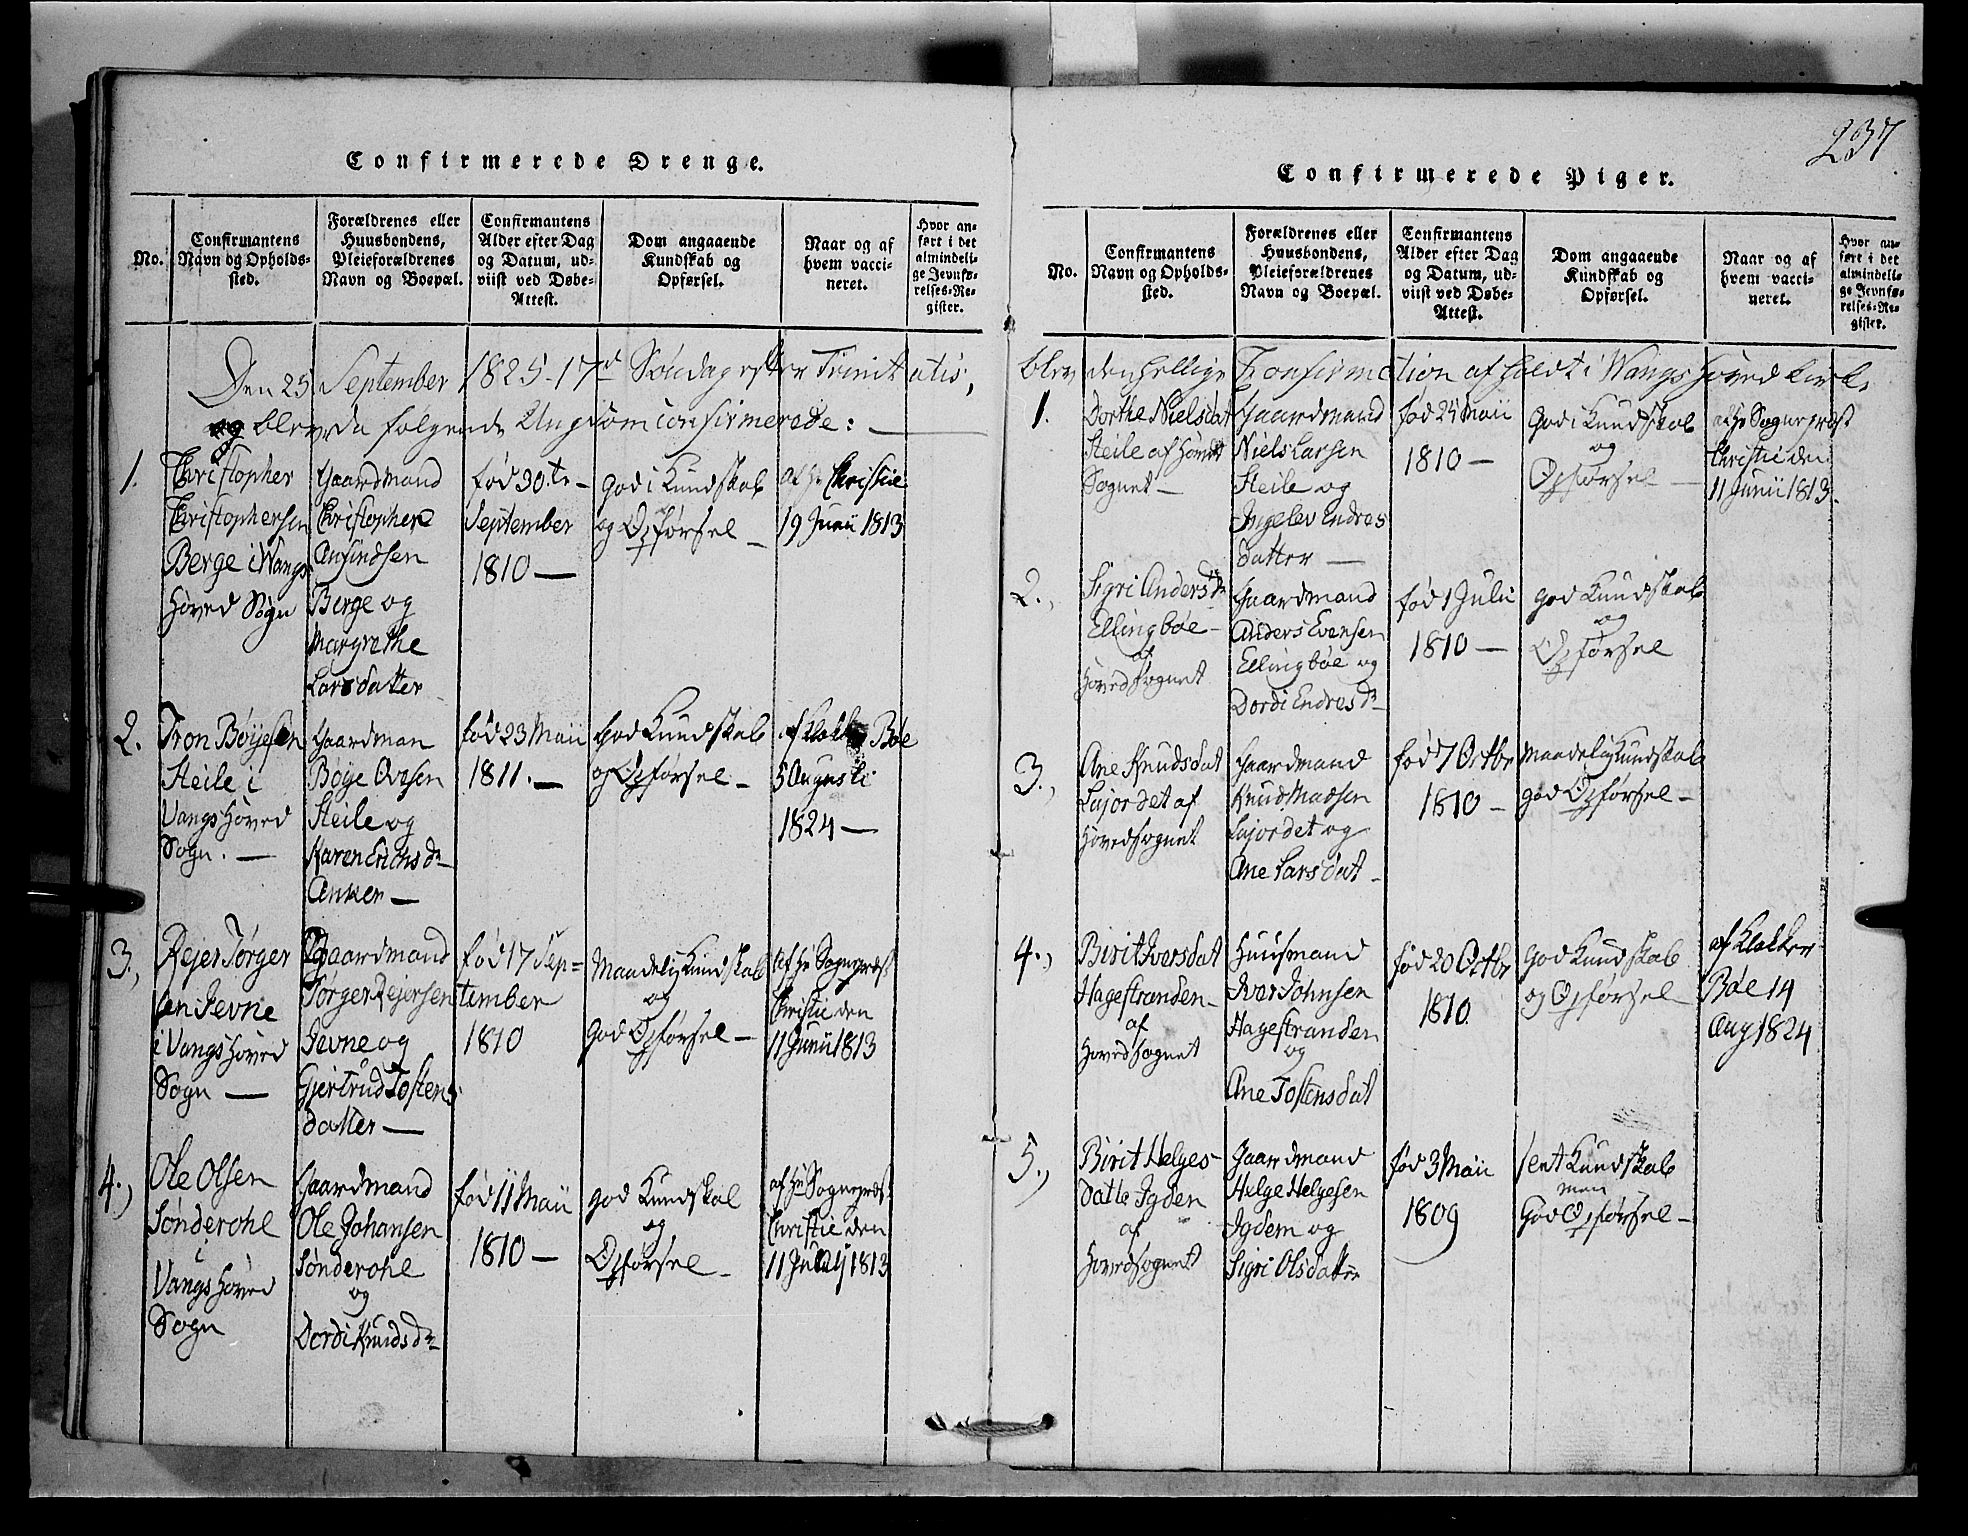 237
Confirmerede Drenge.
No.
Confirmantens
Navn og Opholds-
sted.
Forældrenes eller
Huusbondens,
Pleieforældrenes
Navn og Boepæl.
Confirmantens
Alder efter Dag
og Datum, ud-
viist ved Døbe-
Attest.
Dom angaaende
Kundskab og
Opførsel.
Naar og af
hvem vacci-
neret.
Hvor an-
ført i det
almindeli-
ge Jevnfø-
relses-Re-
gister.
Den 25 September 1825 - 17d Søndag efter Trinitatis,
og blev da følgende Ungdom confirmerede: —
1.
Christopher
Christophersen
Berge i Wangs
Hoved Sogn
Gaardmand
Christopher
Anfindsen
Berge og
Margrethe
Larsdatter
fød 30.te -
September
1810 —
god i Kundskab
og Opførsel —
af Hr Christie
19 Junii 1813
2.
Tron Bøyesen
Steile i
Vangs Hoved
Sogn. —
Gaardman
Bøye Ovesen
Steile og
Karen Erichsdr
Anker —
fød 23 Maii
1811. —
god Kundskab
og Opførsel —
af Klokker Bøe
5 Augusti
1824 —
3.,
Rejer Tørger
sen Jevne
i Vangs Hoved
Sogn —
Gaardmand
Tørger Rejersen
Jevne og
Gjertrud Tostens
datter —
fød 17 Sep=
tember
1810
Maadelig Kundskab
og
god Opførsel —
af Hr Sognepræst
Christie den
11 Junii 1813
4.,
Ole Olsen
Sønderohl
i
Vangs Hoved
Sogn
Gaardmand
Ole Johansen
Sønderohl
og
Dordi Knudsdr
fød 11 Maii
1810 —
god Kundskab
og
Opførsel —
af Hr Sognepræst
Christie den
11 1813
Confirmerede Piger.
No.
Confirmantens
Navn og Opholds-
sted.
Forældrenes eller
Huusbondens,
Pleieforældrenes
Navn og Boepæl.
Confirmantens
Alder efter Dag
og Datum, ud-
viist ved Døbe-
Attest.
Dom angaaende
Kundskab og
Opførsel.
Naar og af
hvem vacci-
neret.
Hvor an-
ført i det
almindeli-
ge Jevnfø-
relses-Re-
gister.
blev den hellige Confirmation afholdt i Wangs Hoved Kirke
1.
Dorthe Nielsdat
Steile af Hoved
Sognet —
Gaardmand
Niels Larsen
Steile og
Ingelev Endres
datter —
fød 24 Maii
1810 —
God i Kundskab
og
Opførsel —
af Hr Sognepræst
Christie den
11 Junii 1813.
2.,
Sigri Andersdr
Ellingbøe —
af
Hovedsognet
Gaardmand
Anders Evensen
Ellingbøe og
Dordi Endresdr
fød 1 Julii
1810 —
god Kundskab
og
Opførsel
3.,
Ane Knudsdat
Lajordet af
Hovedsognet
Gaardmand
Knud Madsen
Lajordet og
Ane Larsdat —
fød 7 Octbr
1810 —
Maadelig Kundskab
god Opførsel —
4.,
Birit Iversdat
Hagestranden —
af
Hovedsognet
Huusmand
Iver Johnsen
Hagestranden
og
Ane Tostensdat
fød 20 Octbr
1810.
god Kundskab
og Opførsel —
af Klokker
Bøe 14
Aug 1824
5.,
Birit Helges-
datte Igden
af
Hovedsognet
Gaardmand
Helge Helgesen
Igdem og
Sigri Olsdatter
fød 3 Maii
1809
sent Kundskab
men
God Opførsel —